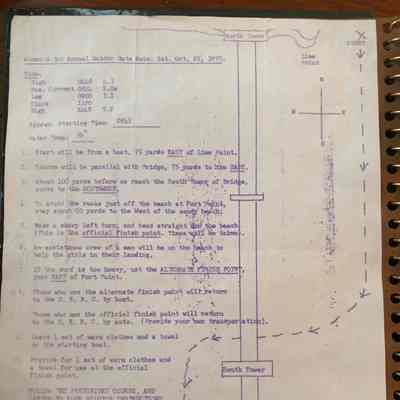 Women's 3rd Annual Golden Gate Swim. Sat. Oct. 25, 1975.
Tide.
High
Max. Current
Low
Slack
High
Approx. Starting Time:
Water Temp:
Start will be from a boat, 75 yards EAST of Lime Point.
Course will be parallel with Bridge, 75 yards to the EAST.
About 100 yards before we reach the South Tower of Bridge,
curve to the SOUTHWEST.
To avoid the rocks just off the beach at Fort Point,
stay about 50 yards to the West of the sandy beach.
Make a sharp left turn, and head straight for the beach
(This is the official finish point. Times will be taken.
An assistance crew of 4 men will be on the beach to
help the girls in their landing.
If the surf is too heavy, use the ALTERNATE FINISH POINT,
just EAST of Fort Point.
Those who use the alternate finish point will return
to the D. E. R. C. by boat.
Those who use the official finish point will return
to the D. E. R. C. by auto. (Provide your own transportation).
Leave 1 set of warm clothes and a towel
in the starting boat.
Provide for 1 set of warm clothes and
a towel for use at the official
finish point.
FOLLOW THE PRESCRIBED COURSE, AND
North Tower
Lime
Point
START
N
W
E
S
South Tower